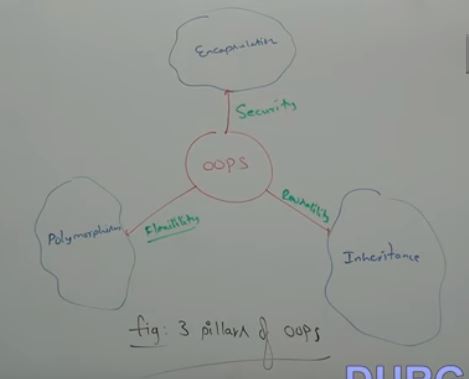 Encapsulation
Security
OOPS
Polymorphism
Flexibility
Reusability
Inheritance
fig: 3 pillars of OOPS
DURG